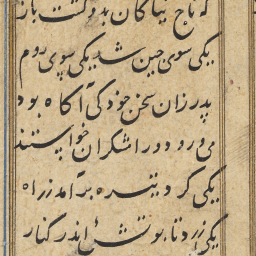 که تاج نیاکان بدو گشت باز
یکی سوی چین شد یکی سوی روم
پدر زان سخن خود کی آگاه بود
می و رود و رامشگران خواستند
یکی کرد و تیره برآمد ز راه
یکی زرد تابوتش اندر کنار